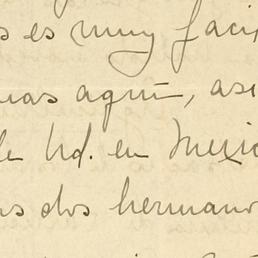 s es muy faci
uas aquí, asi
de Ud. en Mexic
us dos hermano